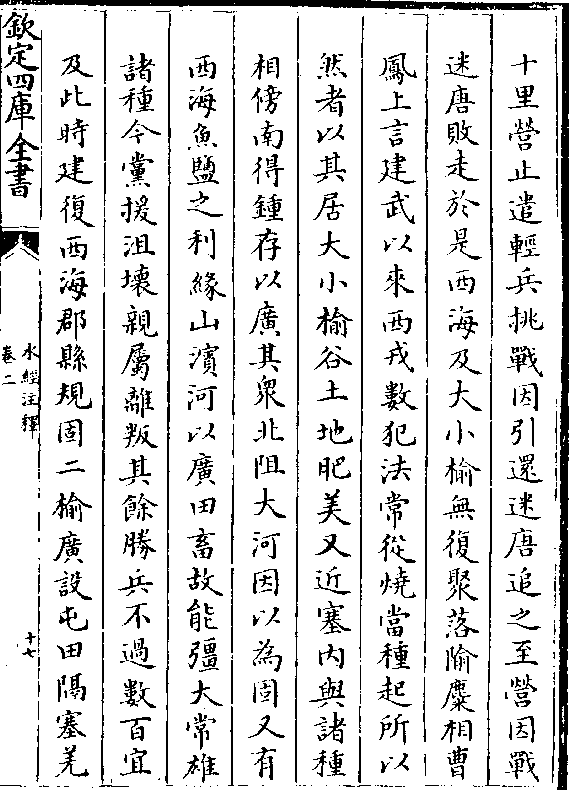 十里營止遣輕兵挑戰因引還迷唐追之至營因戰
迷唐敗走於是西海及大小榆無復聚落隃麋相曹
鳳上言建武以來西戎數犯法常從燒當種起所以
然者以其居大小榆谷土地肥美又近塞内與諸種
相傍南得鍾存以廣其衆北阻大河因以為固又有
西海魚鹽之利緣山濱河以廣田畜故能彊大常雄
諸種今黨援沮壞親屬離叛其餘勝兵不過數百宜
及此時建復西海郡縣規固二榆廣設屯田隔塞羌
欽定四庫全書
水經注釋
卷二
十七